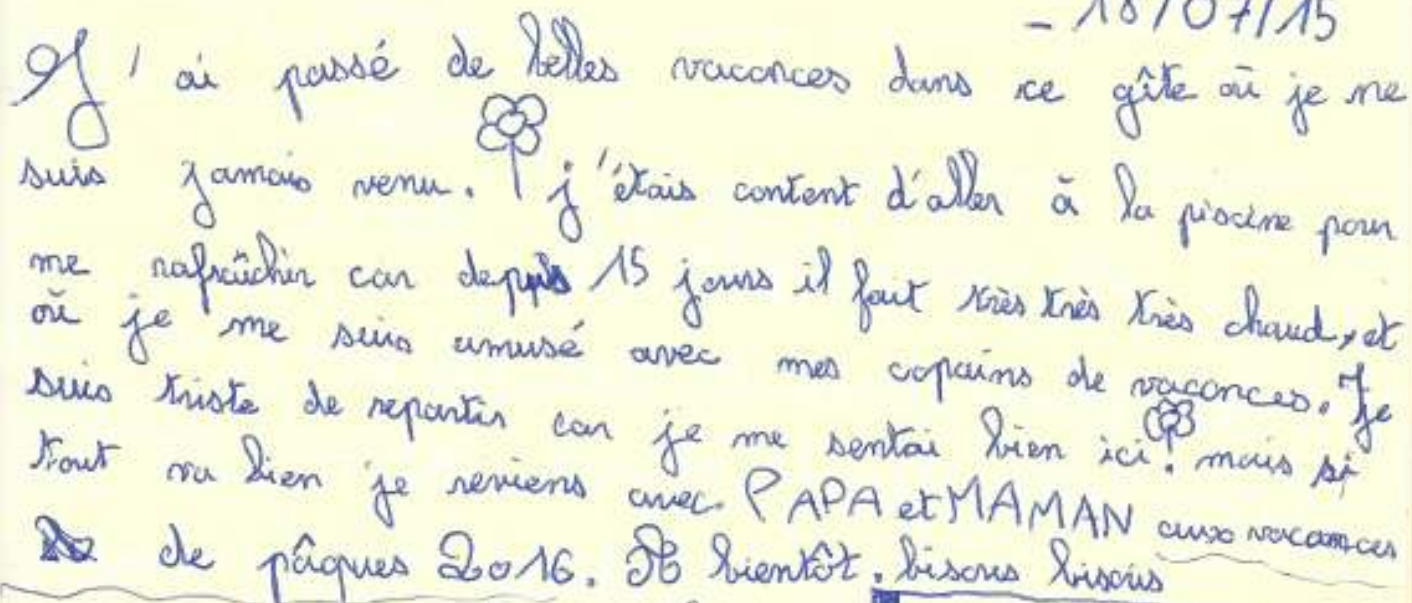 - 18/07/15
J'ai passé de belles vacances dans ce gîte où je me
suis jamais venu. j'étais content d'aller à la piscine pour
me rafraîchir car depuis 15 jours il fait très très très chaud, et
où je me suis amusé avec mes copains de vacances. Je
suis triste de repartir car je me sentai bien ici. mais si
tout va bien je reviens avec PAPA et MAMAN aux vacances
de pâques 2016. A bientôt. bisous bisous